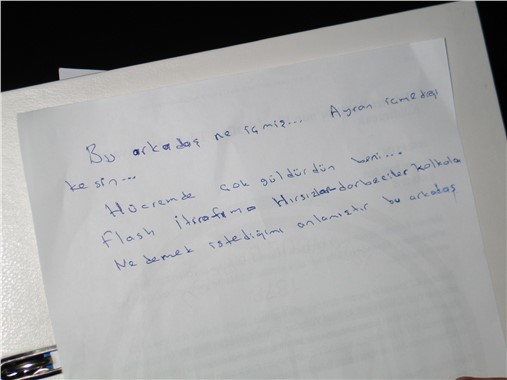 Bu arkadaş ne içmiş... Ayran içmediği
kesin...
Hücremde çok güldürdün beni...
Flash İtirafım = Hırsızlar darbeciler kolkola
Ne demek istediğimi anlamıştır bu arkadaş